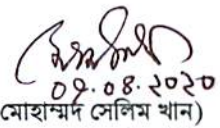 ০৭.০৪.২০২০
(মোহাম্মদ সেলিম খান)